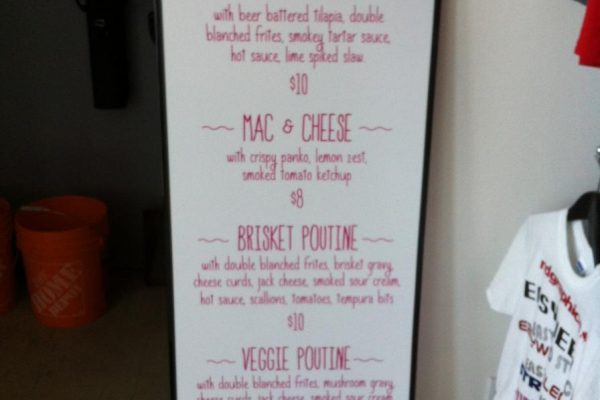 with beer battered tilapia, double
blanched frites, smokey tartar sauce,
hot sauce, lime spiked slaw
$10
MAC & CHEESE
with crispy panko, lemon zest,
smoked tomato ketchup
$8
BRISKET POUTINE
with double blanched frites, brisket gravy,
cheese curds, jack cheese, smoked sour cream,
hot sauce, scallions, tomatoes, tempura bits
$10
VEGGIE POUTINE
with double blanched frites, mushroom gravy,
cheese curds, jack cheese, smoked sour cream
THE HOME DEPOT